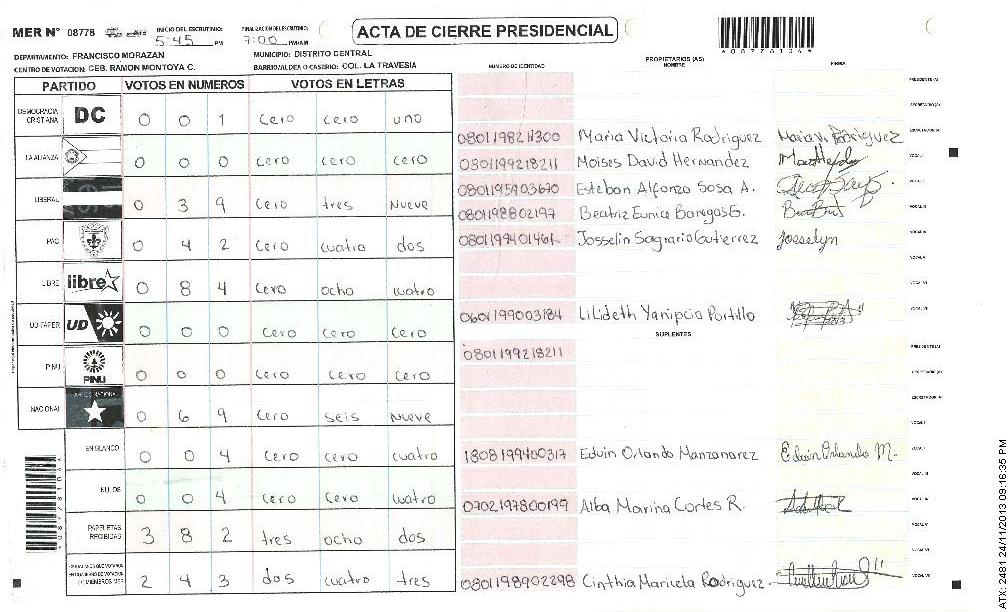 MER N° 08778 INICIO DEL ESCRUTINIO: 5:45 PM FINALIZACION DE ESCRUTINIO: 7:00 PM/AM
ACTA DE CIERRE PRESIDENCIAL
*08778104*
DEPARTAMENTO: FRANCISCO MORAZAN MUNICIPIO: DISTRITO CENTRAL
CENTRO DE VOTACION: CEB. RAMON MONTOYA C. BARRIO/ALDEA O CASERIO: COL. LA TRAVESIA
NUMERO DE IDENTIDAD PROPIETARIOS (AS) NOMBRE FIRMA
PARTIDO VOTOS EN NUMEROS VOTOS EN LETRAS
DEMOCRACIA CRISTIANA DC 0 0 1 cero cero uno
LA ALIANZA 0 0 0 cero cero cero
LIBERAL 0 3 9 cero tres nueve
PAC 0 4 2 cero cuatro dos
LIBRE libre 0 8 4 cero ocho cuatro
UD-FAPER UD 0 0 0 cero cero cero
PINU PINU 0 0 0 cero cero cero
NACIONAL 0 6 9 cero seis nueve
EN BLANCO 0 0 4 cero cero cuatro
NULOS 0 0 4 cero cero cuatro
PAPELETAS RECIBIDAS 3 8 2 tres ocho dos
2 4 3 dos cuatro tres
PRESIDENTE(A)
SECRETARIO(A)
0801198211300 Maria Victoria Rodriguez Maria V. Rodriguez ESCRUTADOR(A)
0801199218211 Moises David Hernandez VOCAL I
0801195903670 Esteban Alfonzo Sosa A.
0801198802197 Beatriz Eunice Banegas G.
0801199401461 Josselin Sagrario Gutierrez Josselyn
0601199003184 Lilideth Yanipcia Portillo
SUPLENTES
0801199218211 PRESIDENTE(A)
SECRETARIO(A)
ESCRUTADOR(A)
1808199400317 Edwin Orlando Manzanarez Edwin Orlando M.
0702197800199 Alba Marina Cortes R.
0801198902298 Cinthia Maricela Rodriguez
ATX: 2481 24/11/2013 09:16:35 PM